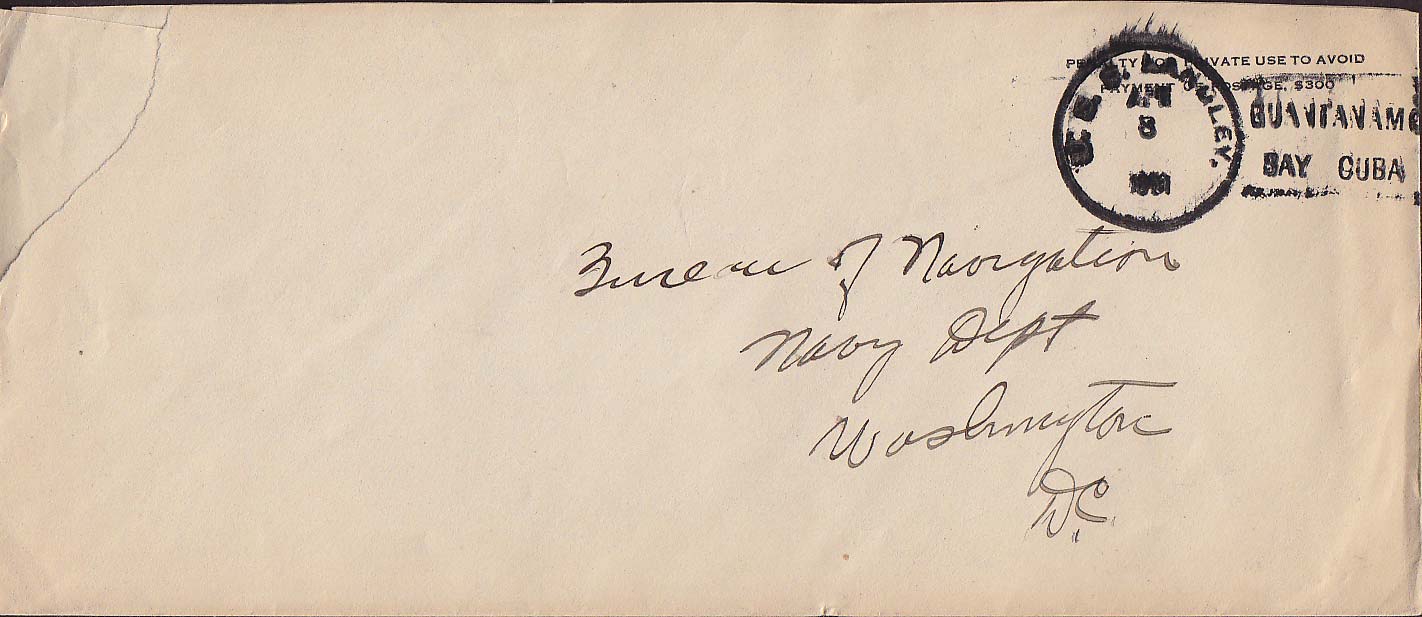 PENALTY FOR PRIVATE USE TO AVOID
PAYMENT OF POSTAGE, $300
U. S. S. LANGLEY.
APR
8
1931
GUANTANAMO
BAY CUBA
Bureau of Navigation
Navy Dept
Washington
D.C.